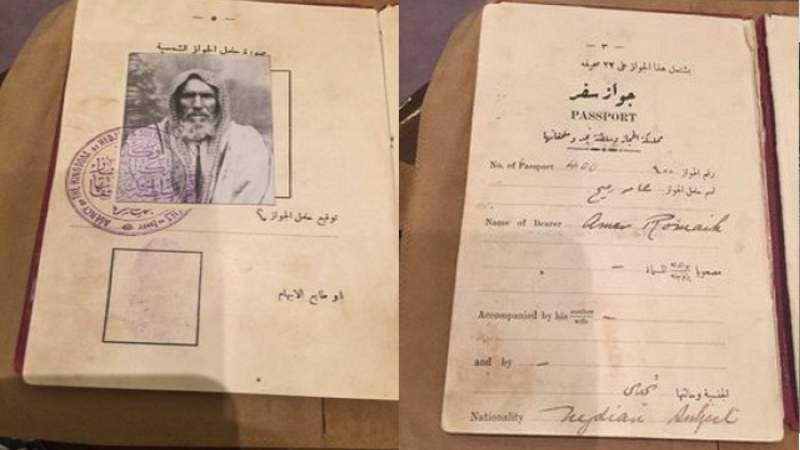 — ٥ —
صورة حامل الجواز الشمسية
AGENCY OF THE KINGDOM OF
توقيع حامل الجواز
او طابع الابهام
— ٣ —
يشتمل هذا الجواز على ٣٢ صحيفه
جواز سفر
PASSPORT
مملكة الحجاز وسلطنة نجد وملحقاتها
No. of Passport
رقم الجواز
اسم حامل الجواز عامر رميح
Name of Bearer Amer Romaih
— مصحوبا بوالدته زوجته المسماة
Accompanied by his mother wife —
and by —
الجنسية وحالتها نجدى
Nationality Nejdian Subject